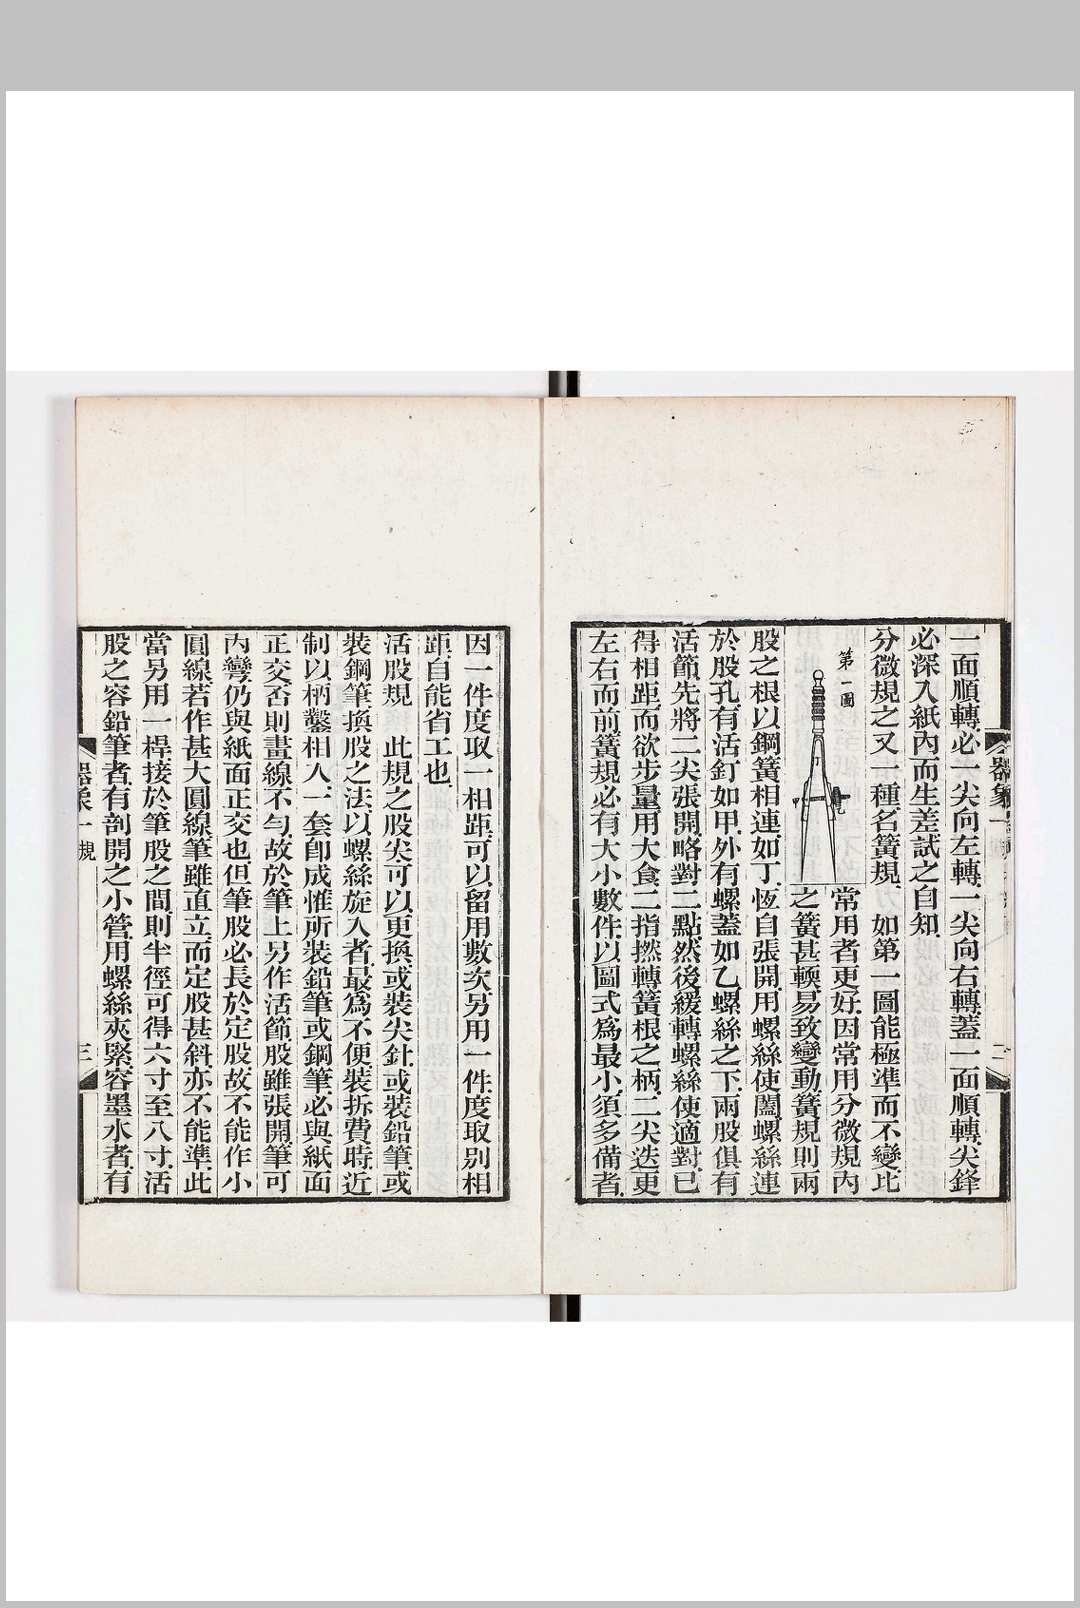 一面順轉必一尖向左轉一尖向右轉蓋一面順轉尖鋒
必深入紙內而生差試之自知
分微規之又一種名簧規 如第一圖能極準而不變比
第一圖
常用者更好因常用分微規內
之簧甚輭易致變動簧規則兩
股之根以鋼簧相連如丁恆自張開用螺絲使闔螺絲連
於股孔有活釘如甲外有螺蓋如乙螺絲之下兩股俱有
活節先將二尖張開略對二點然後緩轉螺絲使適對已
得相距而欲步量用大食二指撚轉簧根之柄二尖迭更
左右而前簧規必有大小數件以圖式為最小須多備者
器象一
二
因一件度取一相距可以留用數次另用一件度取別相
距自能省工也
活股規 此規之股尖可以更換或裝尖針或裝鉛筆或
裝鋼筆換股之法以螺絲旋入者最為不便裝拆費時近
制以柄鑿相入一套卽成惟所裝鉛筆或鋼筆必與紙面
正交否則畫線不勻故於筆上另作活節股雖張開筆可
內彎仍與紙面正交也但筆股必長於定股故不能作小
圓線若作甚大圓線筆雖直立而定股甚斜亦不能準此
當另用一桿接於筆股之間則半徑可得六寸至八寸活
股之容鉛筆者有剖開之小管用螺絲夾緊容墨水者有
器象一 規
三